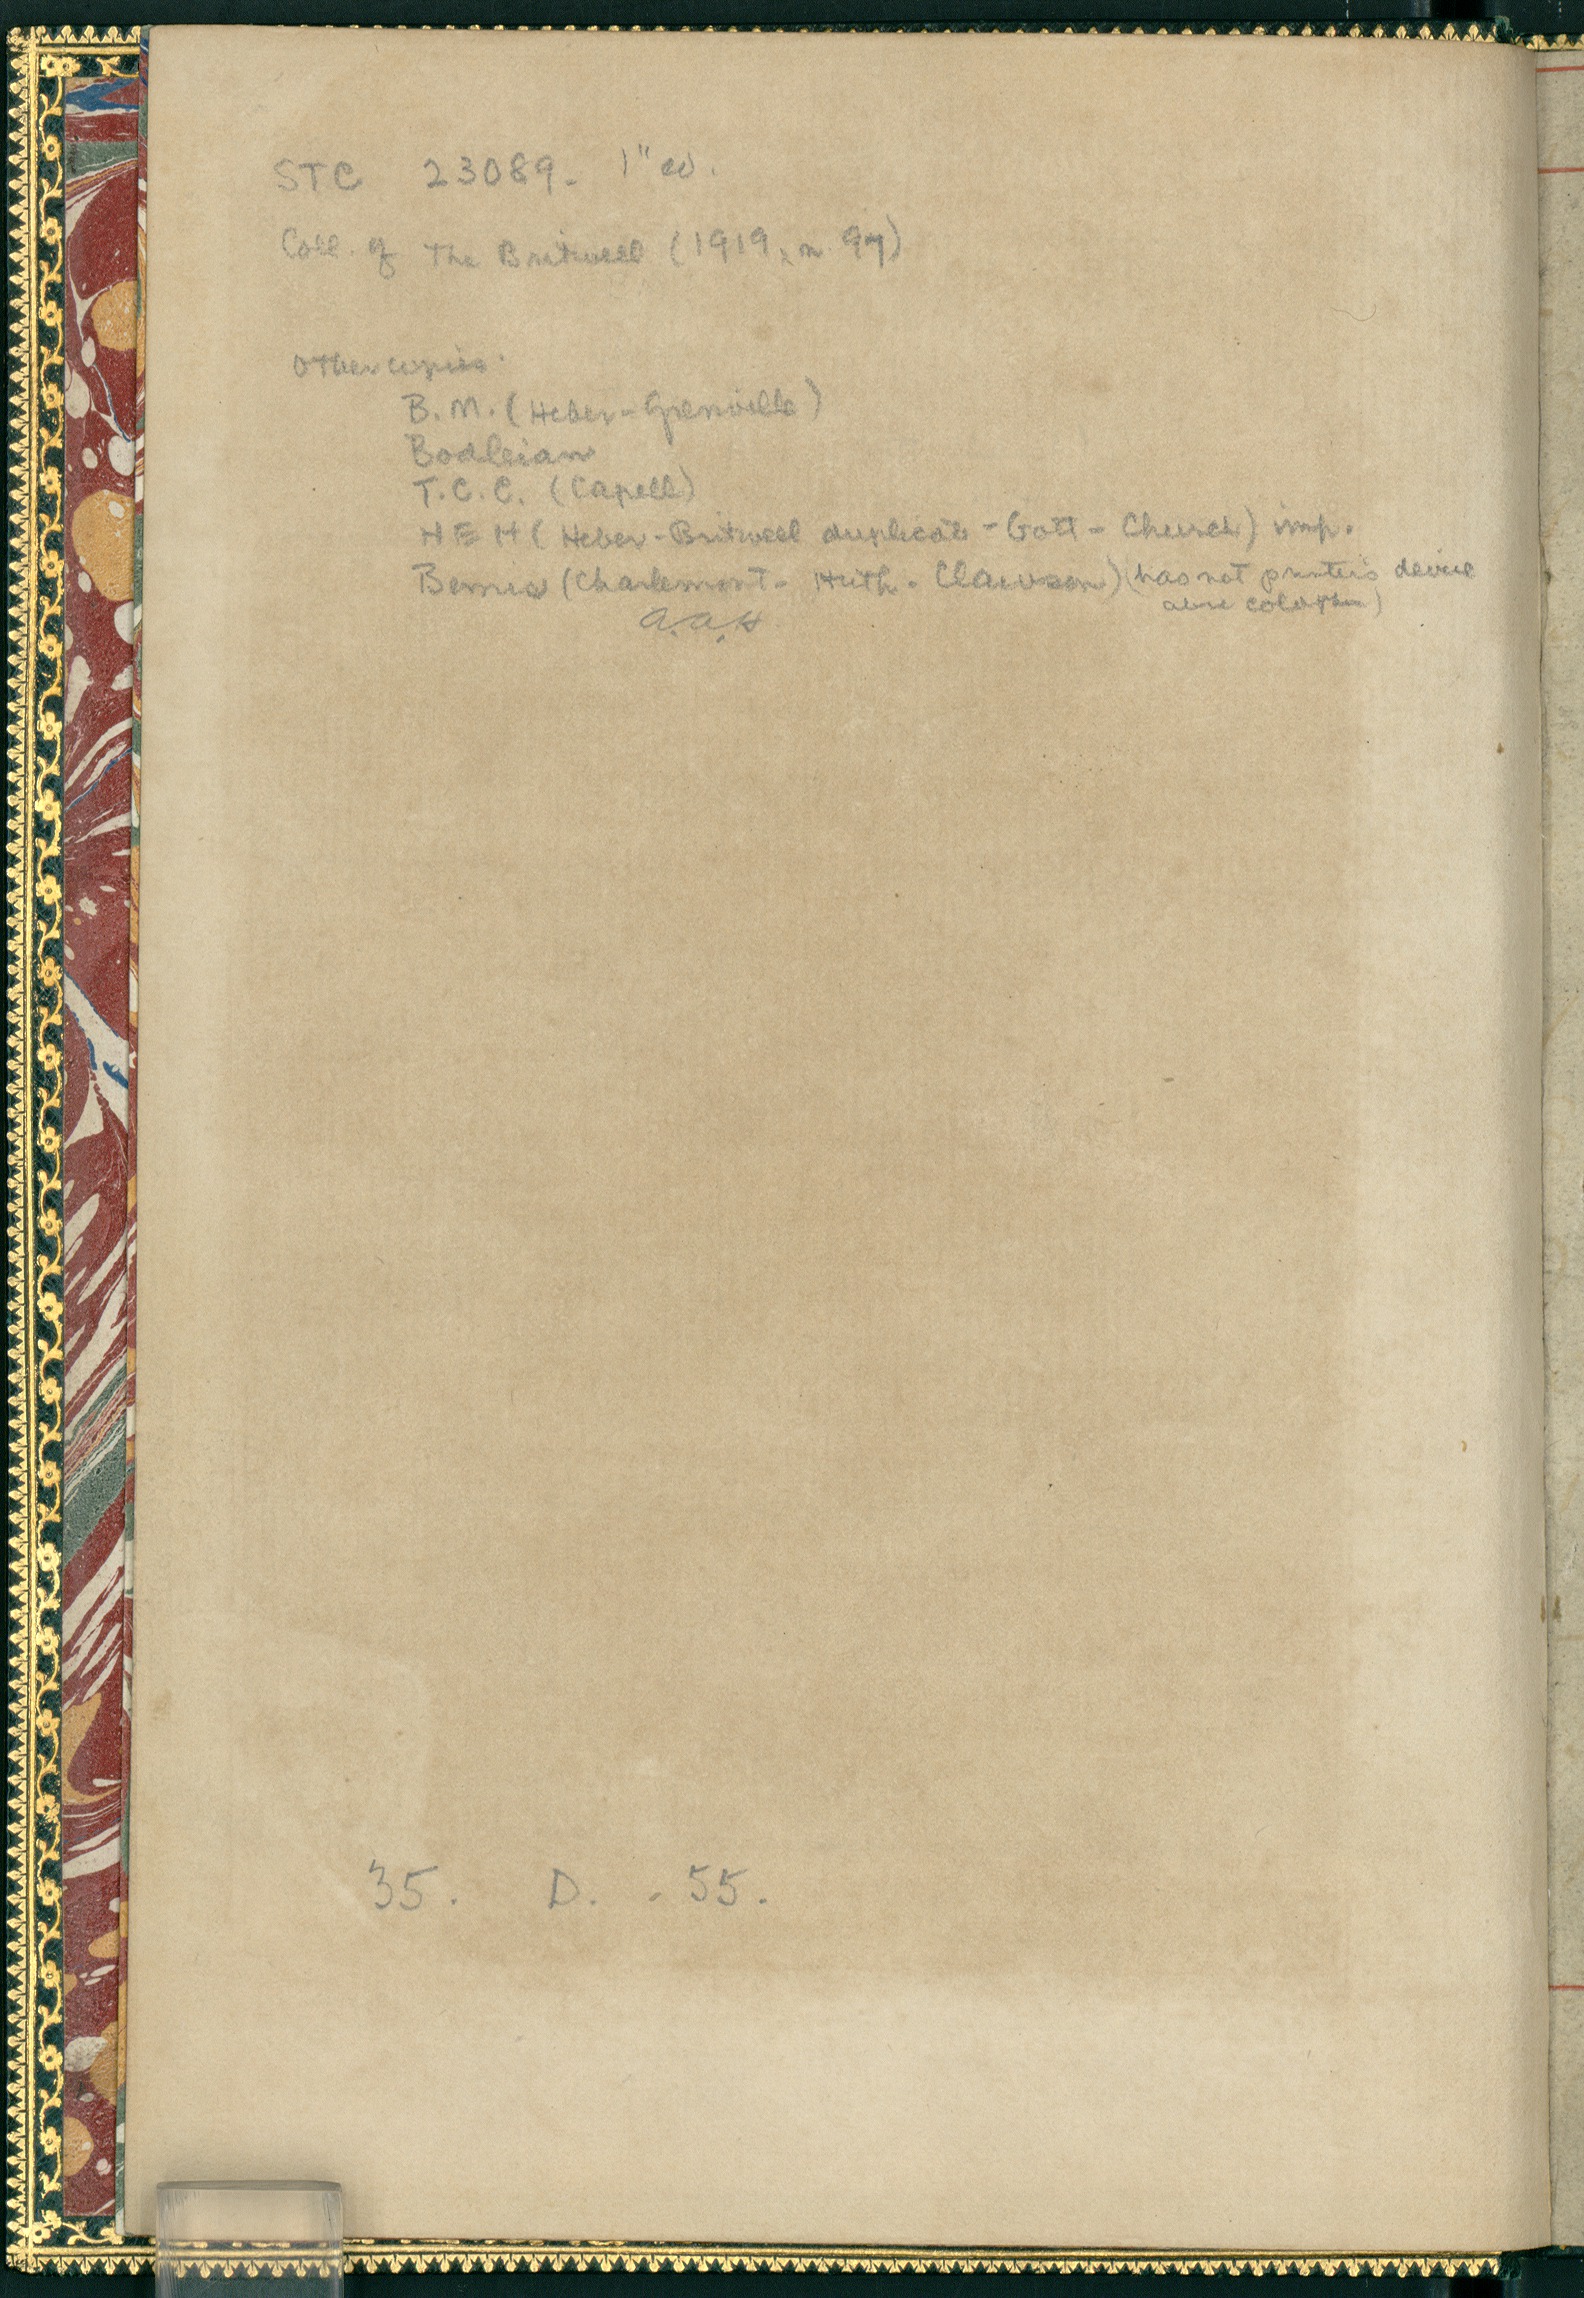 STC 23089- 1" ed.
Coll. of The Britwell (1919, n. 97)
Other copies.
B.M. (Heber-Grenville)
Bodleian
T.C.C. (Capell)
HEH (Heber-Britwell duplicate - Gott - Church) imp.
Bemis (Charlemont - Huth - Clawson) (has not printer's device
colophon)
a.a.H
35. D. . 55.